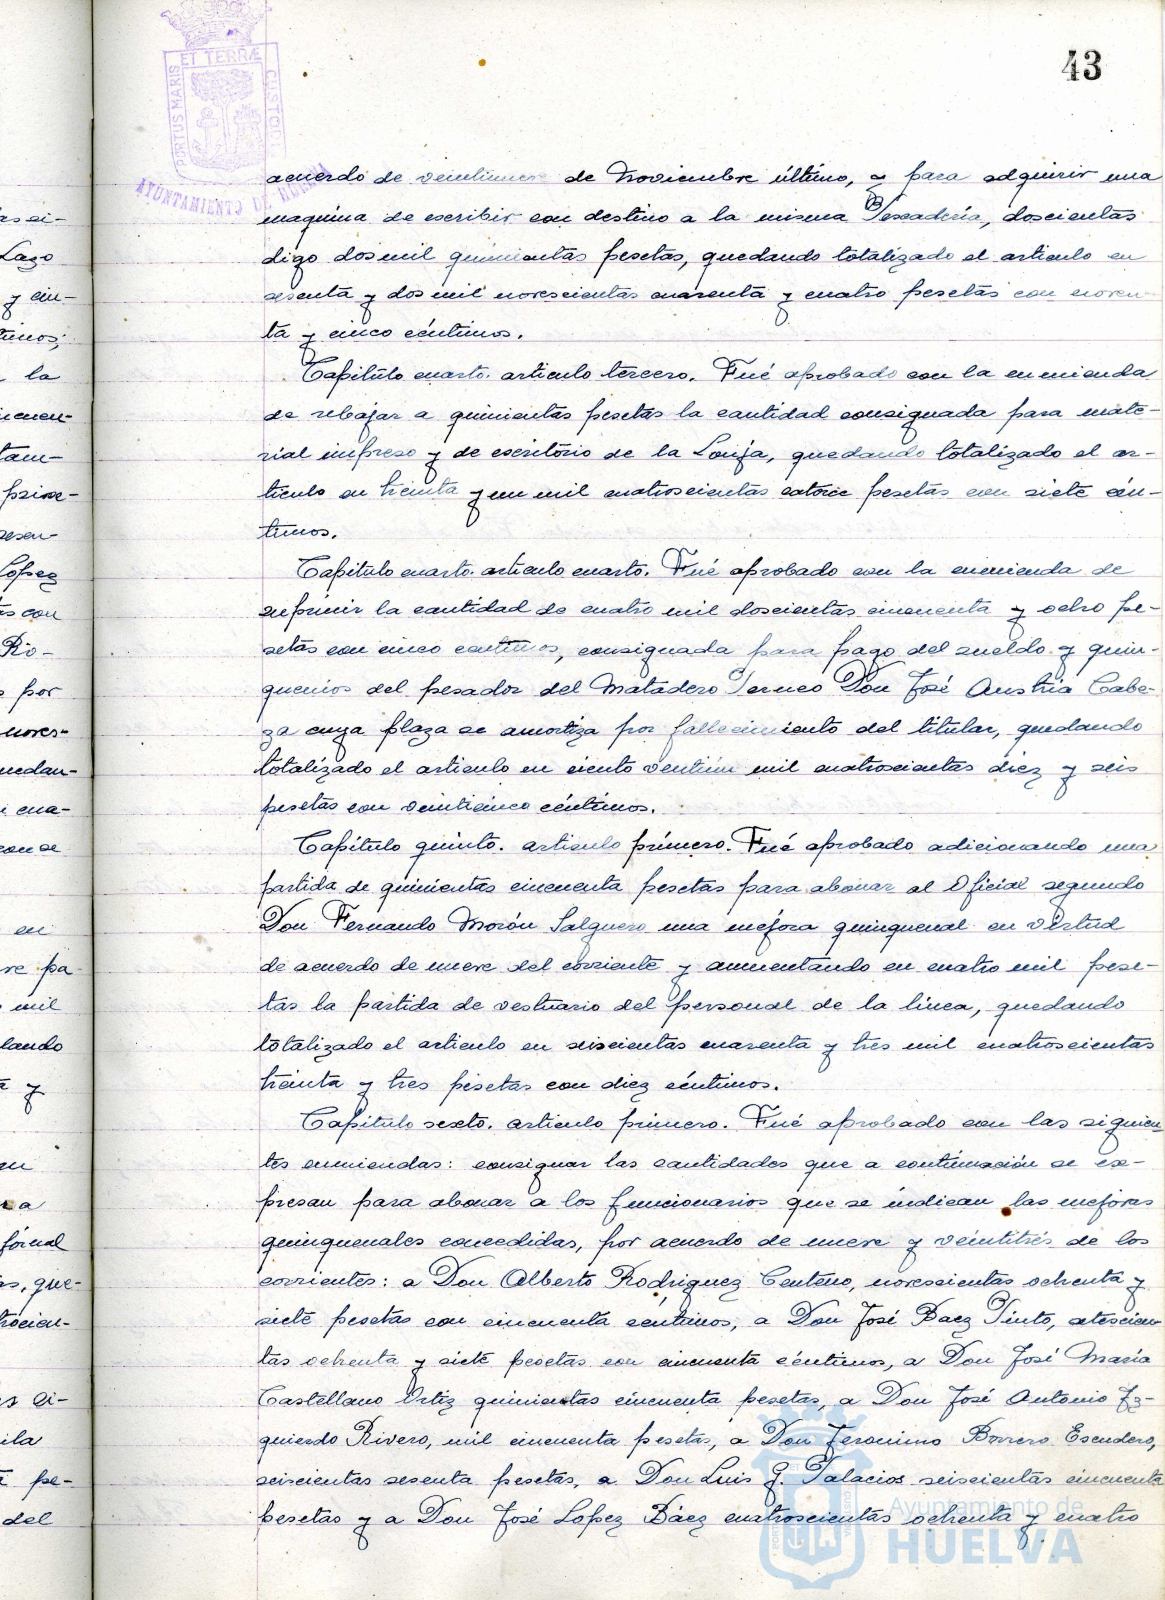 43
PORTUS MARIS ET TERRÆ CUSTODI
AYUNTAMIENTO DE HUELVA
acuerdo de veintinueve de Noviembre último, y para adquirir una
maquina de escribir con destino a la misma Pescaderia, doscientas
digo dos mil quinientas pesetas, quedando totalizado el articulo en
sesenta y dos mil novescientas cuarenta y cuatro pesetas con noven-
ta y cinco céntimos.
Capitulo cuarto. articulo tercero. Fué aprobado con la enmienda
de rebajar a quinientas pesetas la cantidad consignada para mate-
rial impreso y de escritorio de la Lonja, quedando totalizado el ar-
ticulo en treinta y un mil cuatroscientas catorce pesetas con siete cén-
timos.
Capitulo cuarto. articulo cuarto. Fué aprobado con la enmienda de
suprimir la cantidad de cuatro mil doscientas cincuenta y ocho pe-
setas con cinco centimos, consignada para pago del sueldo y quin-
quenios del pesador del Matadero Perneo Don José Austria Cabe-
za cuya plaza se amortiza por fallecimiento del titular, quedando
totalizado el articulo en ciento ventiún mil cuatroscientas diez y seis
pesetas con veinticinco céntimos.
Capítulo quinto. articulo primero. Fué aprobado adicionando una
partida de quinientas cincuenta pesetas para abonar al Oficial segundo
Don Fernando Morón Salguero una mejora quinquenal en virtud
de acuerdo de nueve del corriente y aumentando en cuatro mil pese-
tas la partida de vestuario del personal de la línea, quedando
totalizado el articulo en seiscientas cuarenta y tres mil cuatroscientas
treinta y tres pesetas con diez céntimos.
Capitulo sexto. articulo primero. Fué aprobado con las siguien-
tes enmiendas: consignar las cantidades que a continuación se ex-
presan para abonar a los funcionarios que se indican las mejoras
quinquenales concedidas, por acuerdo de nueve y veintitrés de los
corrientes: a Don Alberto Rodriguez Centeno, novescientas ochenta y
siete pesetas con cincuenta céntimos, a Don José Baez Pinto, setescien-
tas ochenta y siete pesetas con cincuenta céntimos, a Don José María
Castellano Ortiz quinientas cincuenta pesetas, a Don José Antonio Iz-
quierdo Rivero, mil cincuenta pesetas, a Don Jeronimo Borrero Escudero,
seiscientas sesenta pesetas, a Don Luis G. Palacios seiscientas cincuenta
pesetas y a Don José Lopez Báez cuatroscientas ochenta y cuatro
Ayuntamiento de
HUELVA